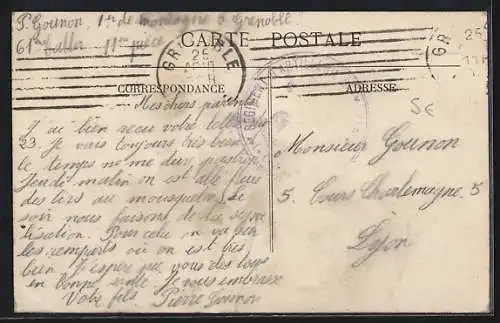 P. Gounon, 1er de montagne à Grenoble
61me batter 11me pièce
CARTE POSTALE
GRENOBLE
25
CORRESPONDANCE
ADRESSE
5€
Mes chers parents
J'ai bien reçu votre lettre du
23. Je vais toujours très bien
le temps ne me dure pas trop.
Jeudi matin on est allé faire
des tirs au mousqueton. Le
soir nous faisons de la signa
lisation. Pour cela on va sur
les remparts où on est très
bien. J'espère que vous êtes tous
en bonne santé. Je vous embrasse
Votre fils Pierre Gounon
Monsieur Gounon
5 Cours Charlemagne 5
Lyon